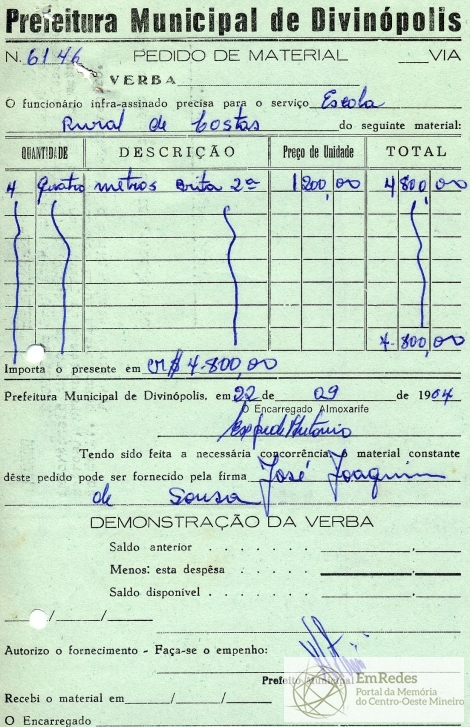 Prefeitura Municipal de Divinópolis
N. 6146 PEDIDO DE MATERIAL VIA
VERBA
O funcionário infra-assinado precisa para o serviço Escola
Rural de Costas do seguinte material:
QUANTIDADE DESCRIÇÃO Preço de Unidade TOTAL
4 quatro metros brita 2ª 1200,00 4800,00
4.800,00
Importa o presente em CR$ 4.800,00
Prefeitura Municipal de Divinópolis, em 22 de 09 de 1964
O Encarregado Almoxarife
Tendo sido feita a necessária concorrência, o material constante
dêste pedido pode ser fornecido pela firma José Joaquim
de Sousa
DEMONSTRAÇÃO DA VERBA
Saldo anterior . . . . . . .
Menos: esta despêsa . . . . . .
Saldo disponível . . . . . . .
/ /
Autorizo o fornecimento - Faça-se o empenho:
Prefeito Municipal
Recebi o material em / /
O Encarregado
EmRedes
Portal da Memória
do Centro-Oeste Mineiro